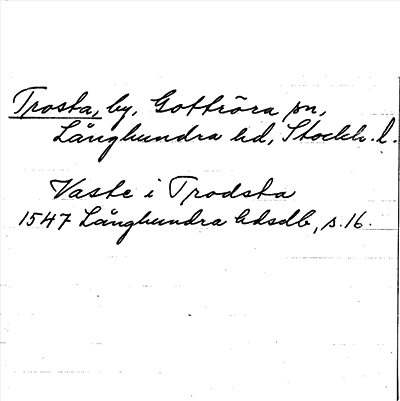 Trosta, by, Gottröra sn,
Långhundra hd, Stockh. l.
Vaste i Trodsta
1547 Långhundra hdsdb, s. 16.